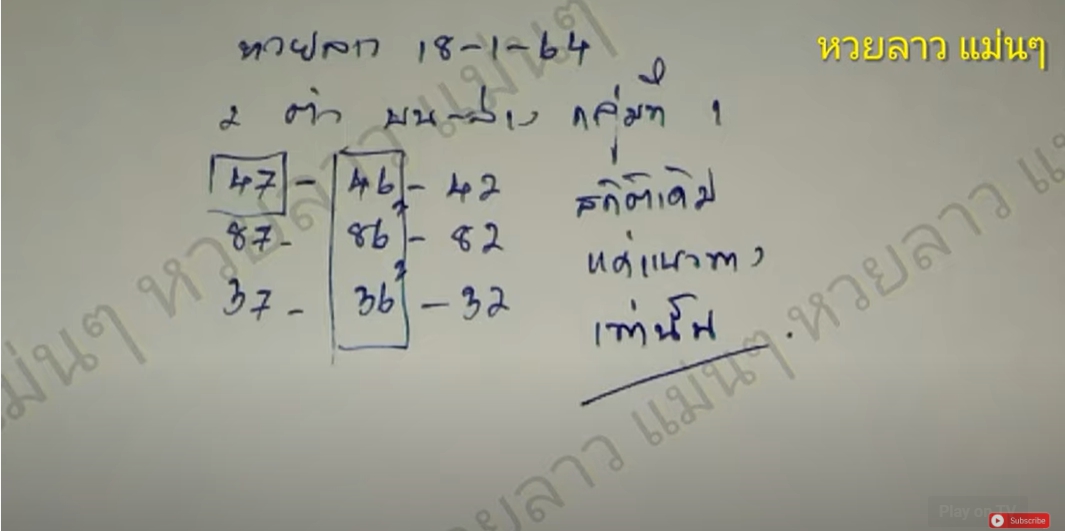 หวยลาว 18-1-64
หวยลาว แม่นๆ
2 ตัว บน-ล่าง กลุ่มที่ 1
47 - 46 - 42
87 - 86 - 82
37 - 36 - 32
สถิติเดิม
แค่แนวทาง
เท่านั้น
หวยลาว แม่นๆ
Play on TV
Subscribe